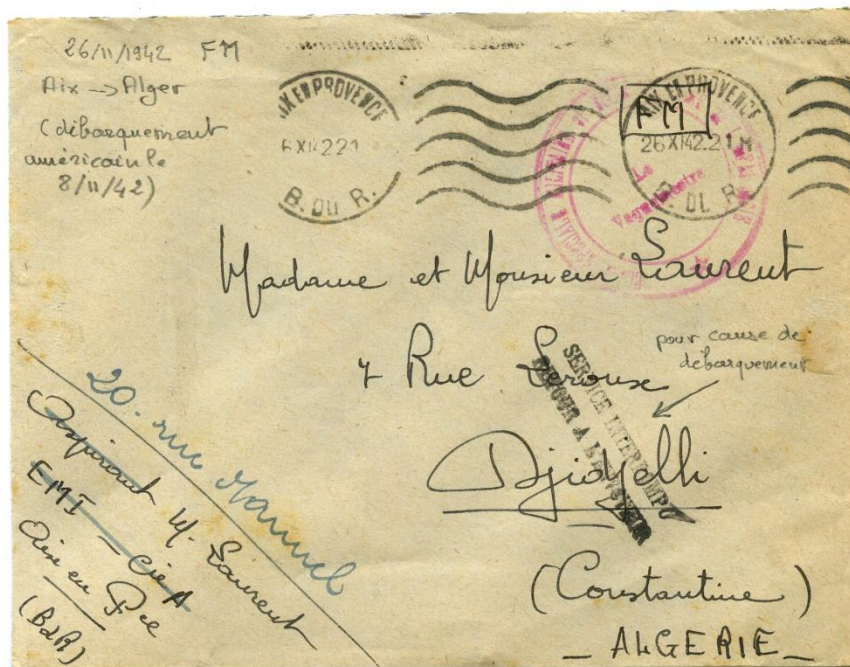 26/11/1942 FM
Aix → Alger
(débarquement
américain le
8/11/42)
AIX EN PROVENCE
6 XI 42 21
B. DU R.
FM
AIX EN PROVENCE
26 XI 42. 21 H
B. DU R.
Le
Vaguemestre
Madame et Monsieur Laurent
7 Rue Leroux
pour cause de
débarquement
SERVICE INTERROMPU
RETOUR A L'ENVOYEUR
Djidjelli
(Constantine)
_ ALGERIE _
20. rue
Aspirant M. Laurent
EMI - Cie A
Aix en Pce
(BdR)